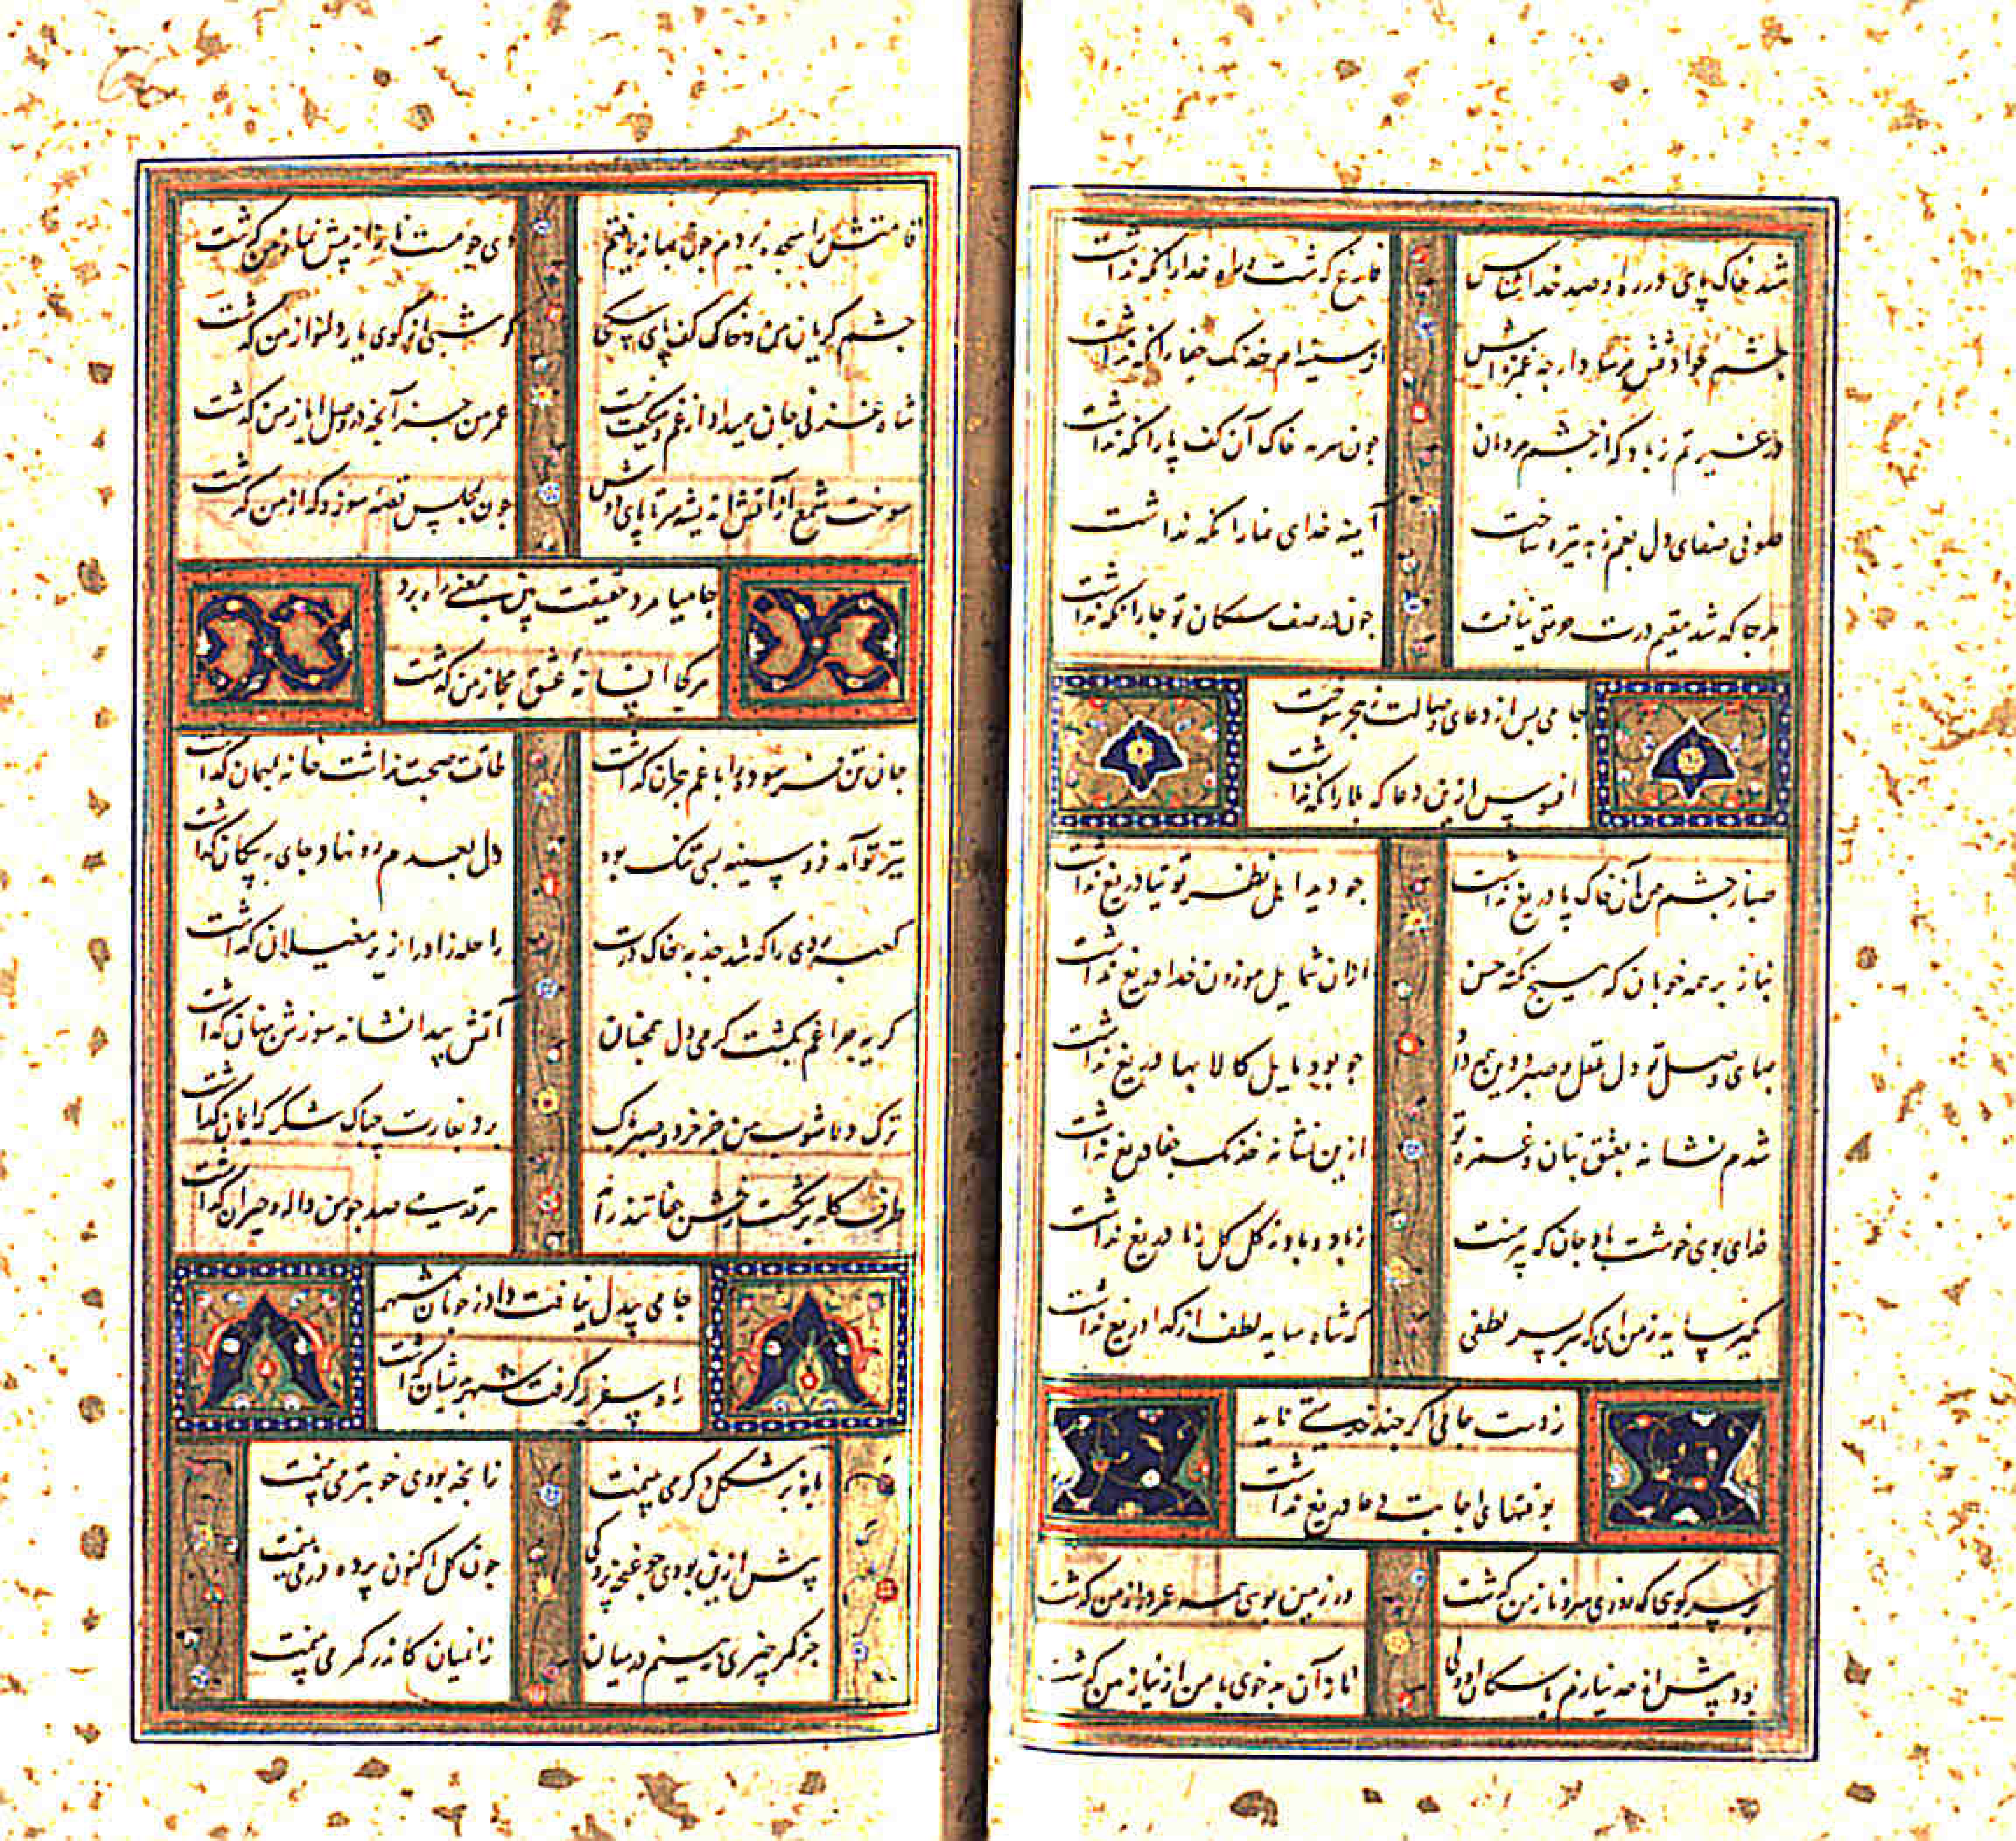 شد خاک پای در ره او صد خداشناس
فارغ گذشت و راه خدا را نگه نداشت
چشمم فتاد دوش
از سینه‌ام خدنگ جفا را نگه نداشت
در غیرتم ز باد که از چشم مردمان
چون سرمه خاک آن کف پا را نگه نداشت
صوفی صفای دل بغم تیره ساخت
آینه خدای نما را نگه نداشت
هر جا که شد مقیم درت حرمتی نیافت
چون در صف سگان تو جا را نگه نداشت
جامی بس از دعای وصالت ز هجر سوخت
افسوس ازین دعا که بلا را نگه نداشت
صبا ز چشم من آن خاک پا دریغ نداشت
چو دید اهل نظر توتیا دریغ نداشت
بناز بر همه خوبان که هیچ نکته حسن
ازان شمایل موزون خدا دریغ نداشت
بهای وصل تو دل عقل و صبر و دین هم داد
چو بود مایل کالا بها دریغ نداشت
شدم نشانه بعشق بتان و غمزه تو
ازین نشانه خدنگ جفا دریغ نداشت
فدای بوی خوشت باد جان که پیرهنت
ز باد و باد ز گل گل ز ما دریغ نداشت
مگیر سایه ز من ای که بر سر لطفی
که شاه سایه لطف از گدا دریغ نداشت
ز دست جامی اگر چند خدمتی ناید
بوقتهای اجابت دعا دریغ نداشت
بر سر کویی که روزی سرو ناز من گذشت
در زمین بوسی همه عمر دراز من گذشت
بود پیش از حد نیازم با سگان او ولی
ناز آن بدخوی با من از نیاز من گذشت
قامتش را سجده بردم چون نماز یافتم
دی چو مست ناز از پیش نماز من گذشت
چشم گریان من و خاک کف پای سگی
کو شبی از کوی یار دلنواز من گذشت
شاه غزنی جان میداد از غم و میگفت
عمر من جز آنچه در وصل ایاز من گذشت
سوخت شمع از آتش اندیشه سر تا پای دوش
چون بمجلس قصه سوز و گداز من گذشت
جامیا مرد حقیقت پی بمعنی راه برد
هر کجا افسانه عشق مجاز من گذشت
جان تن فرسوده را با غم هجران گذاشت
طاقت صحبت نداشت خانه بمهمان گذاشت
تیر تو آمد فرو سینه بسی تنگ بود
دل بعدم رو نهاد جای به پیکان گذاشت
کعبه روی را که شد جذبه خاک درت
راحله زاد را زیر مغیلان گذاشت
گریه چراغم بکشت گرمی دل همچنان
آتش پیدا نشاند سوزش پنهان گذاشت
ترک دل آشوب من جز خرد و صبر
برد بغارت چه باک شکر که ایمان گذاشت
طرف کله برشکست رخش جفا تند راند
هر قدمی صد چو من واله و حیران گذاشت
جامی بیدل نیافت داد ز خوبان شهر
راه سفر برگرفت شهر بدیشان گذاشت
باز بر شکل دگر می‌بینمت
زانچه بودی خوبتر می‌بینمت
پیش ازین بودی چو غنچه پردگی
چون گل اکنون پرده در می‌بینمت
جز کمر چیزی نبینم در میان
زانمیان کاندر کمر می‌بینمت